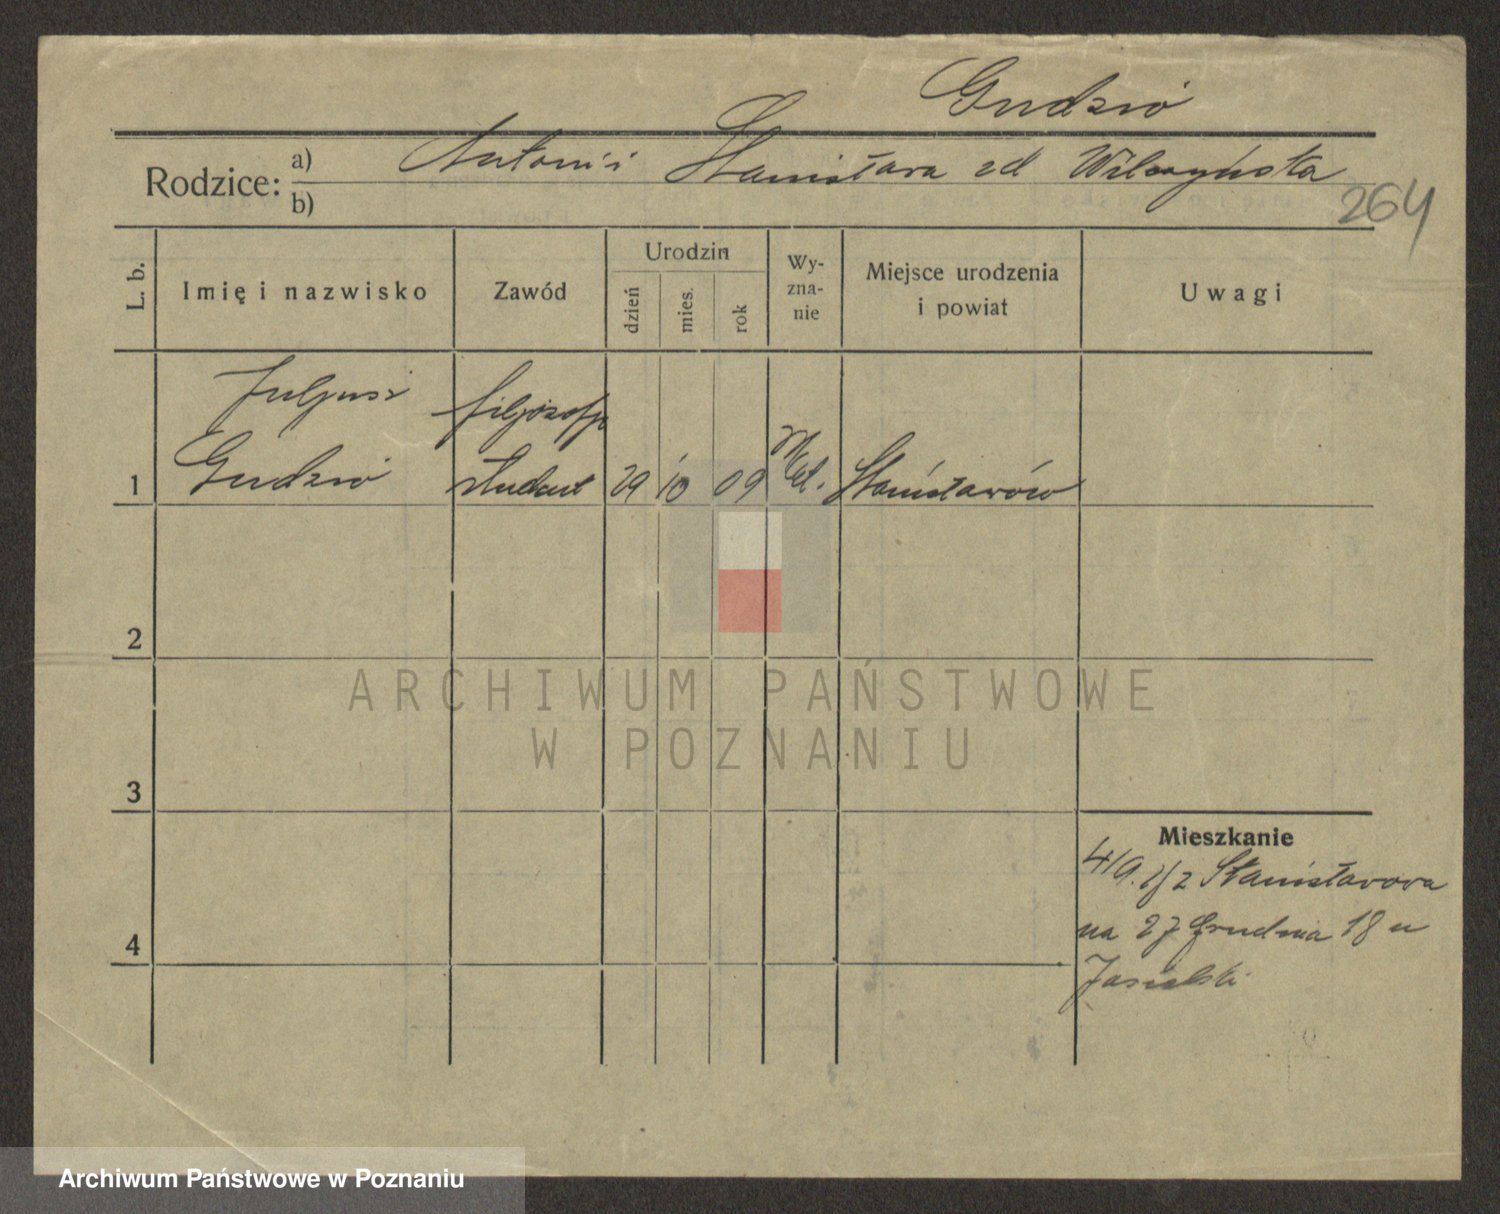 Gudzió
Rodzice: a) Antoni i Stanisława zd Wilczyńska
b)
264
L. b.
Imię i nazwisko
Zawód
Urodzin
dzień
mies.
rok
Wy-
zna-
nie
Miejsce urodzenia
i powiat
Uwagi
Juljusz filjozofji
1 Gudzió student 29 10 09 kat. Stanisławów
2
ARCHIWUM PAŃSTWOWE
W POZNANIU
3
Mieszkanie
4/9. z Stanisławowa
na 27 Grudnia 18 u
4
Jasielski
Archiwum Państwowe w Poznaniu